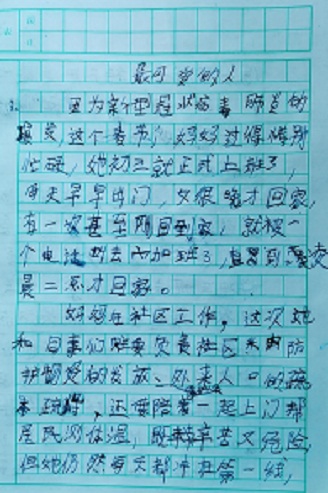 最可爱的人
因为新型冠状病毒肺炎的
爆发,这个春节,妈妈过得特别
忙碌,她初三就正式上班了,
每天早早出门,又很晚才回家,
有一次甚至刚回到家,就被一
个电话叫去加班了,直到凌
晨二点才回家。
妈妈在社区工作,这次她
和同事们要负责社区的防
护物资的发放、外来人口的
,还要陪着一起上门帮
居民测体温,既辛苦又危险,
但她仍然每天都冲在第一线,